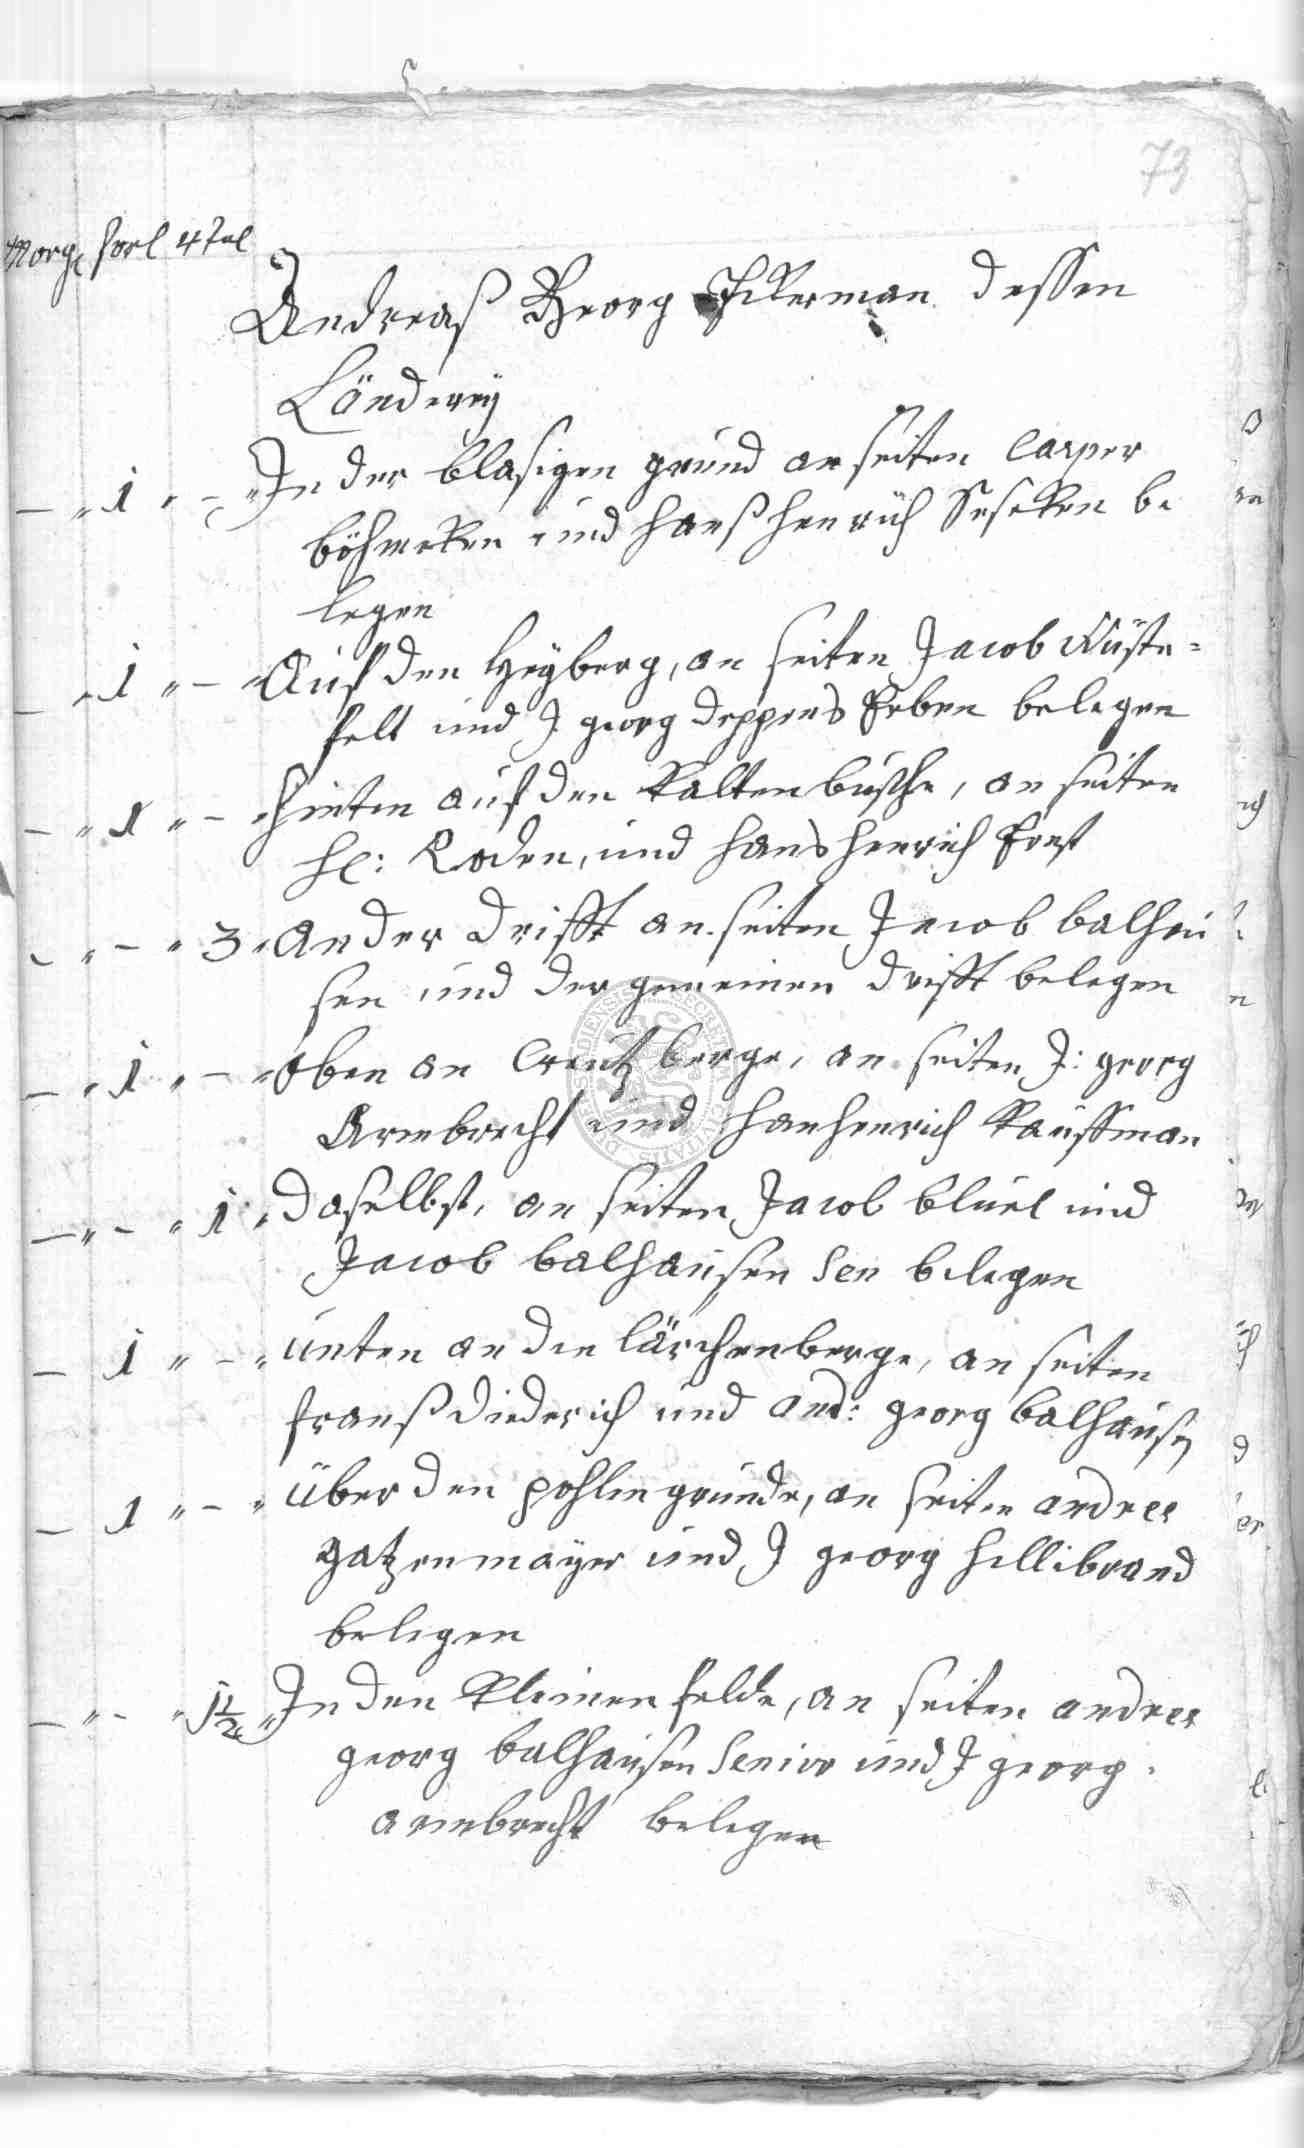 73
Morg forl 4tel
Andreas Georg Ickerman dessen
Länderey
— " 1 " — " In der blasigen grund an seiten Casper
böhmeken und Hanß Henrich be
legen
— " 1 " — " Auf den Heyberg, an seiten Jacob Wüste=
felt und J georg deppens Erben belegen
— " 1 " — " Hinten auf den Kaltenbusche, an seiten
H: Roden, und Hans Henrich Ernst
— " — " 3 " An der Drifft an seiten Jacob balhau
sen und der gemeinen drifft belegen
— " 1 " — " Oben an Creutzberge, an seiten J: georg
Armbrecht und Hanhenrich Kauffman
— " — " 1 " Daselbst, an seiten Jacob bluel und
Jacob balhausen Sen belegen
— 1 " — " Unten an den lärchenberge, an seiten
franß diederich und And: georg balhausen
— 1 " — " Über den pohlengrunde, an seiten andreas
gatzenmayer und J georg hillibrand
belegen
— " — " 1½ " In den kleinen felde, an seiten andreas
georg balhausen Senior und J georg
armbrecht belegen